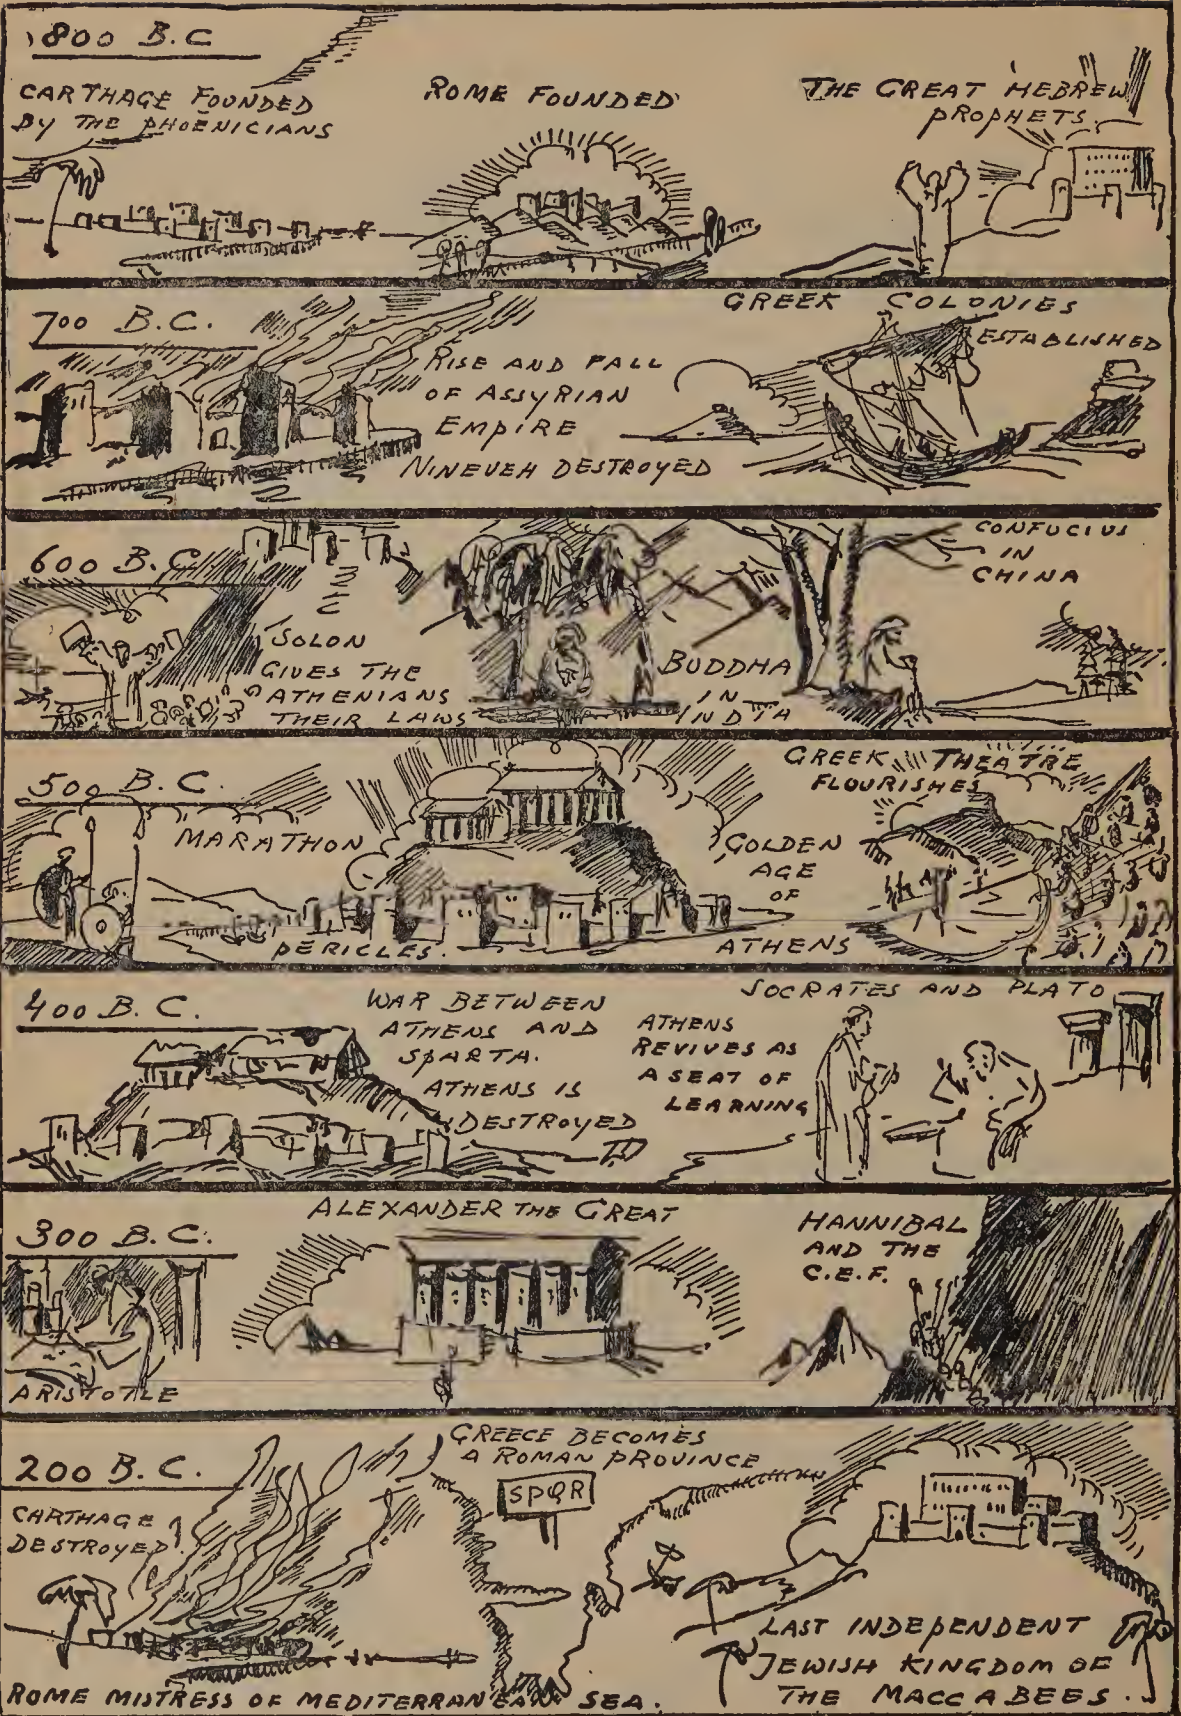 800 B.C
CARTHAGE FOUNDED
BY THE PHOENICIANS
ROME FOUNDED
THE GREAT HEBREW
PROPHETS.
700 B.C.
RISE AND FALL
OF ASSYRIAN
EMPIRE
NINEVEH DESTROYED
GREEK COLONIES
ESTABLISHED
600 B.C.
SOLON
GIVES THE
ATHENIANS
THEIR LAWS
BUDDHA
IN
INDIA
CONFUCIUS
IN
CHINA
500 B.C.
MARATHON
PERICLES.
GOLDEN
AGE
OF
ATHENS
GREEK THEATRE
FLOURISHES
400 B.C.
WAR BETWEEN
ATHENS AND
SPARTA.
ATHENS IS
DESTROYED
ATHENS
REVIVES AS
A SEAT OF
LEARNING
SOCRATES AND PLATO
300 B.C.
ARISTOTLE
ALEXANDER THE GREAT
HANNIBAL
AND THE
C.E.F.
200 B.C.
CARTHAGE
DESTROYED
GREECE BECOMES
A ROMAN PROVINCE
SPQR
LAST INDEPENDENT
JEWISH KINGDOM OF
THE MACCABEES.
ROME MISTRESS OF MEDITERRANEAN SEA.